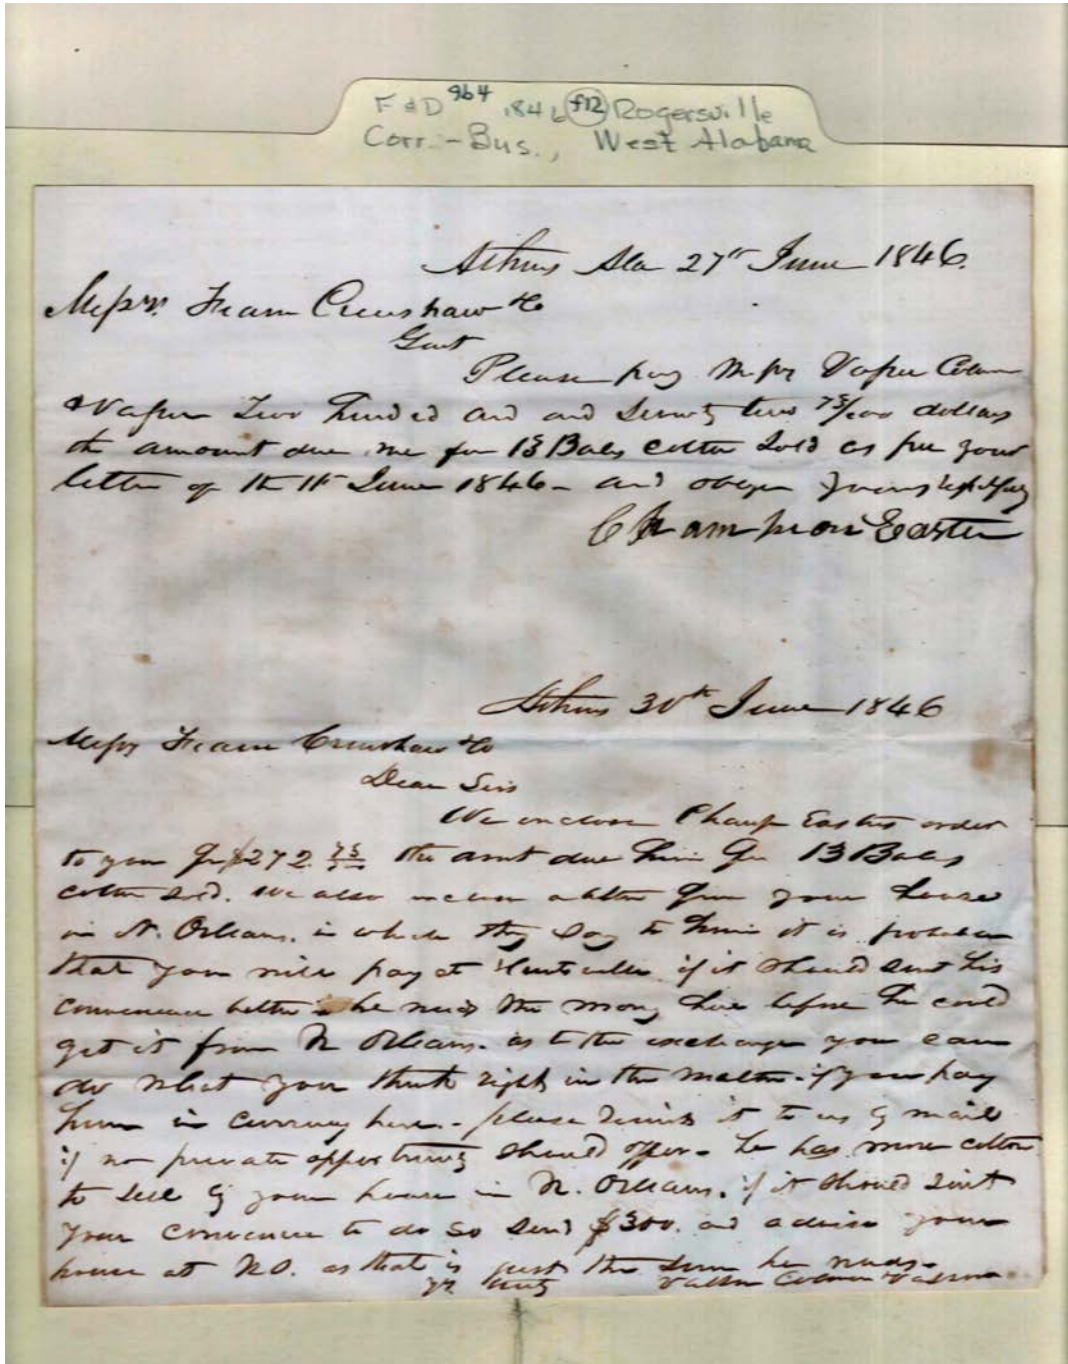 F&D 964 1846 f12 Rogersville
Corr. - Bus., West Alabama
Athens Ala 27th June 1846.
Messrs. Fearn Crenshaw & Co
Gent
Please pay Messrs Vasser Coman
& Vasser Two Hundred and and Seventy two 75/100 dollars
the amount due me for 13 Bales cotton Sold as per your
letter of the 11th June 1846 - and oblige yours respectfully
Champion Easter
Athens 30th June 1846
Messrs Fearn Crenshaw & Co
Dear Sirs
We enclose Champ Easters order
to you for $272.75 the amt due him for 13 Bales
cotton sold. We also enclose a letter from your house
in N. Orleans. in which they say to him it is probable
that you will pay at Huntsville if it should suit his
convenience better he needs the money here before he could
get it from N Orleans. as to the exchange you can
do what you think right in the matter. if you pay
him in currency here. - please remit it to us by mail
if no private opportunity should offer. he has more cotton
to sell by your house in N. Orleans. if it should suit
your convenience to do so send $300. and advise your
house at N.O. as that is just the sum he needs.
yr truly Vasser Coman & Vasser